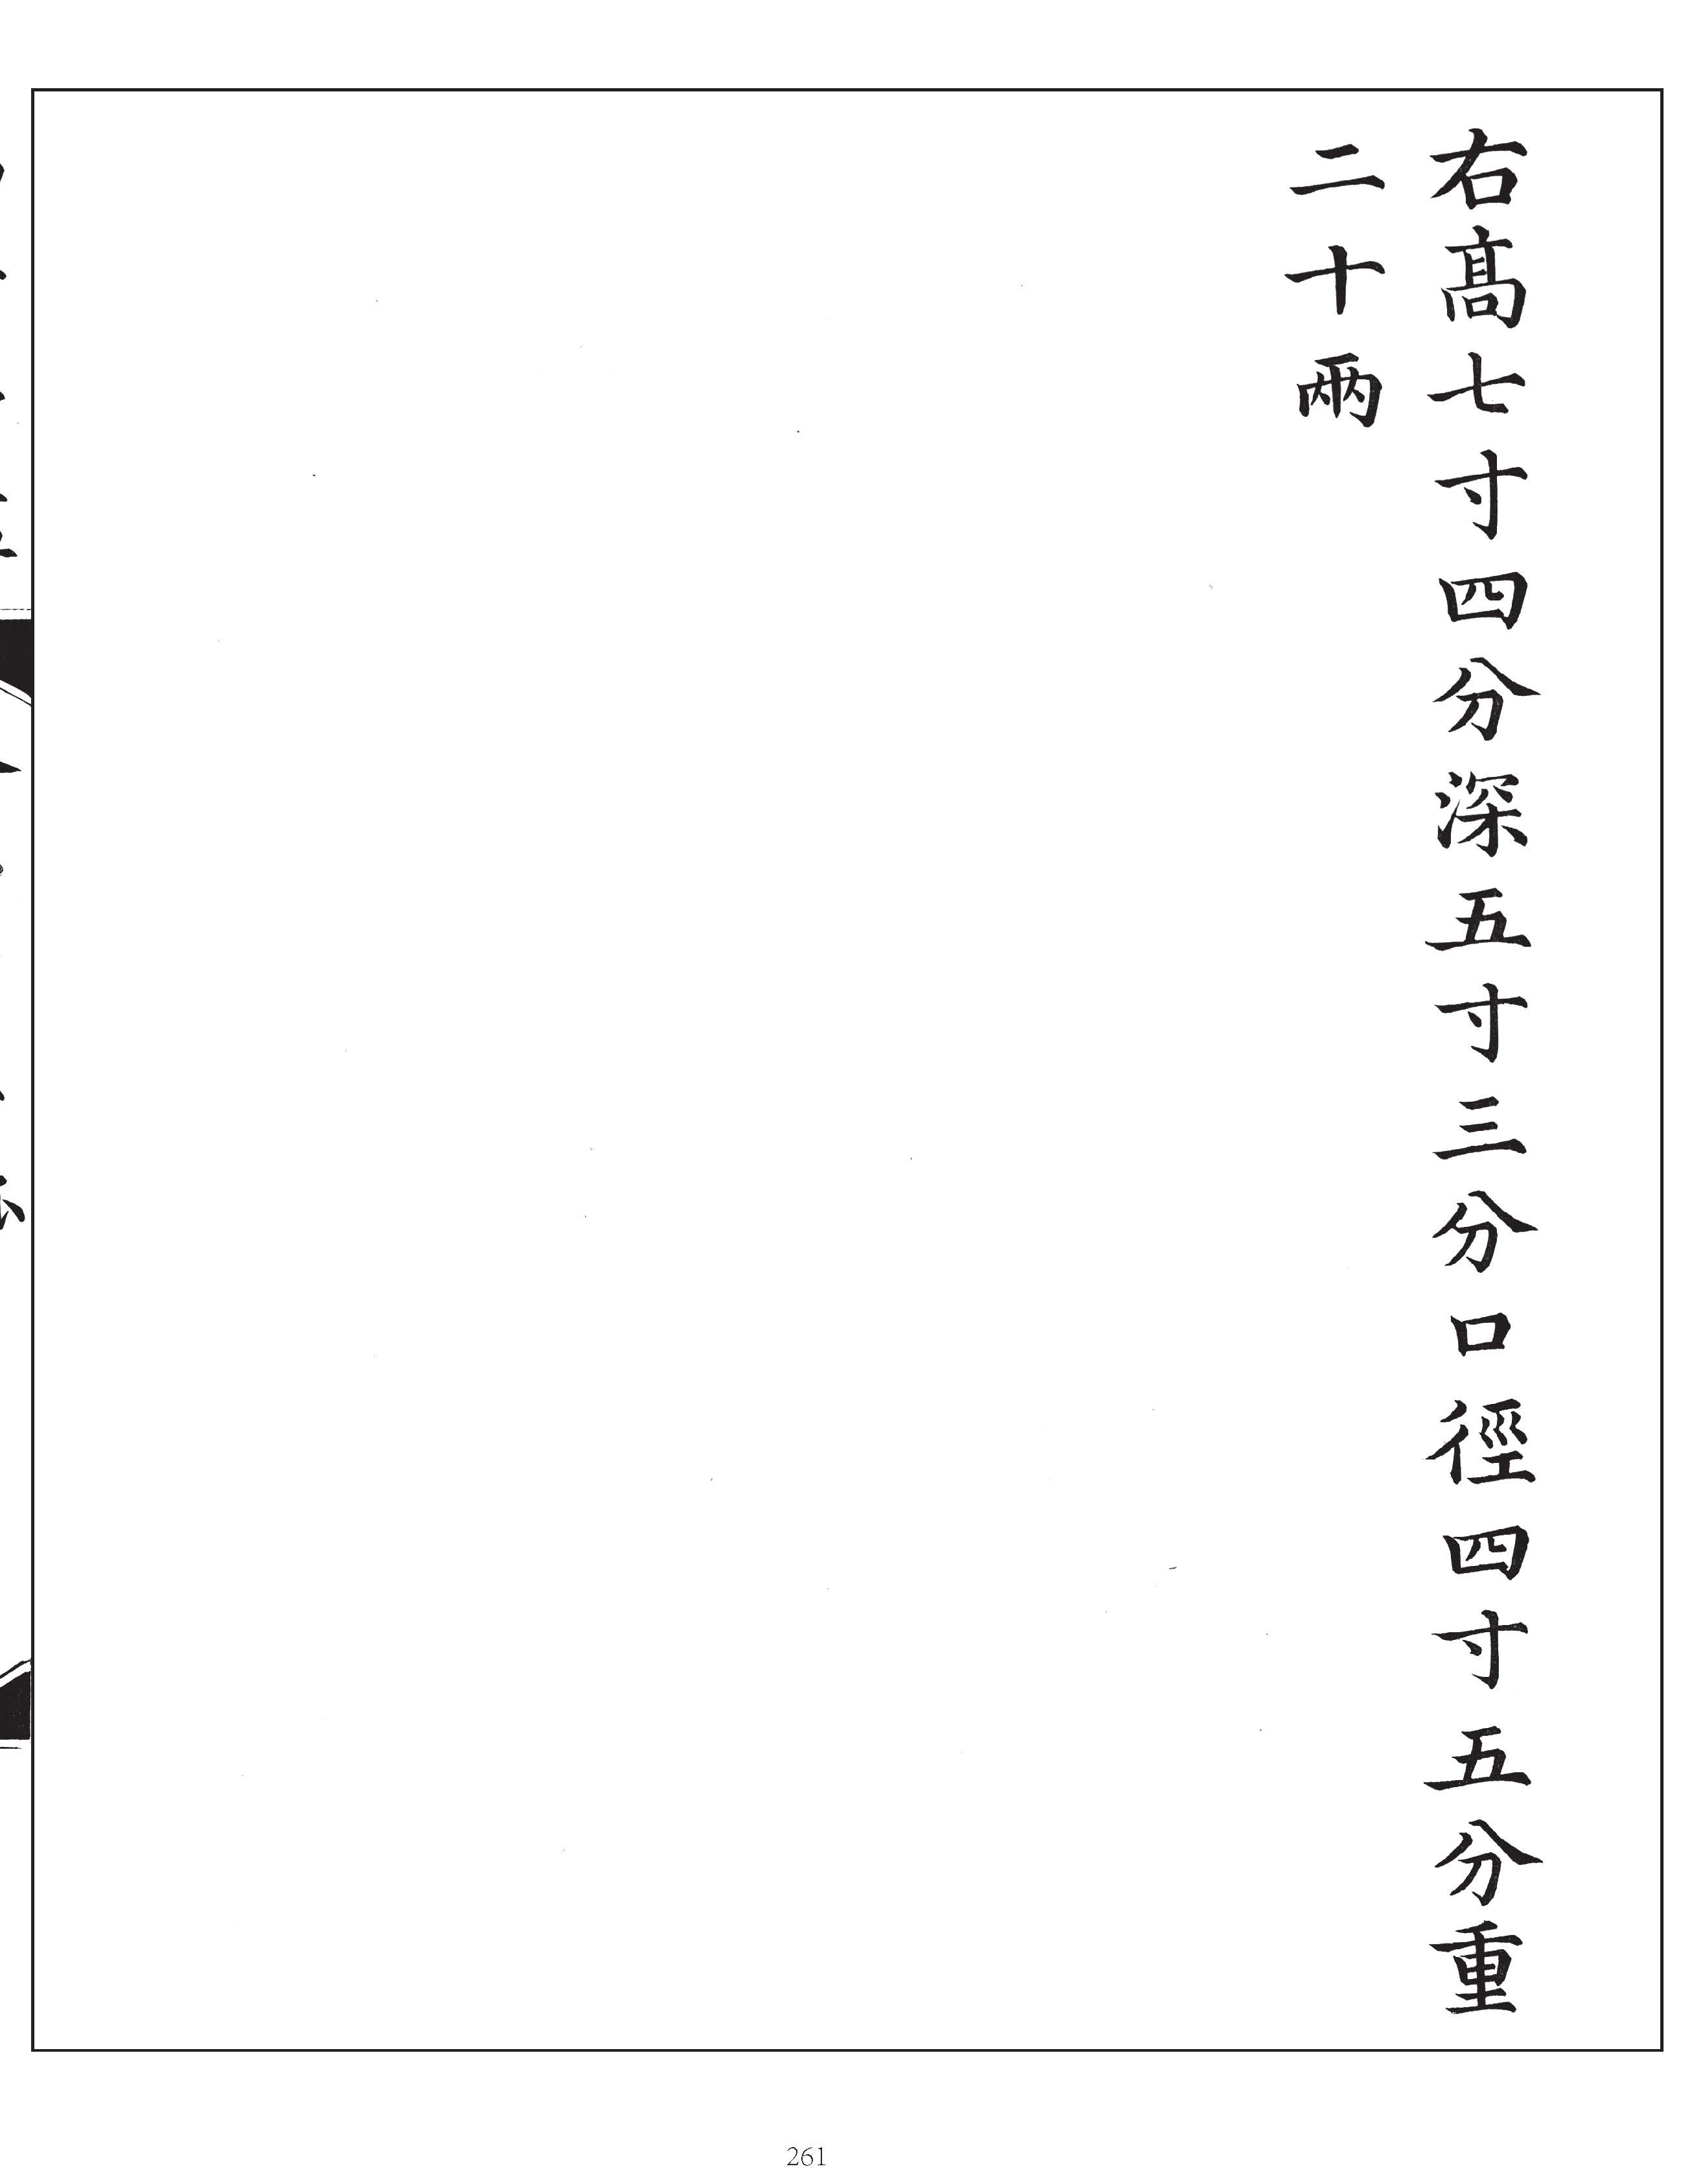 右髙七寸四分深五寸三分口徑四寸五分重
二十兩
261